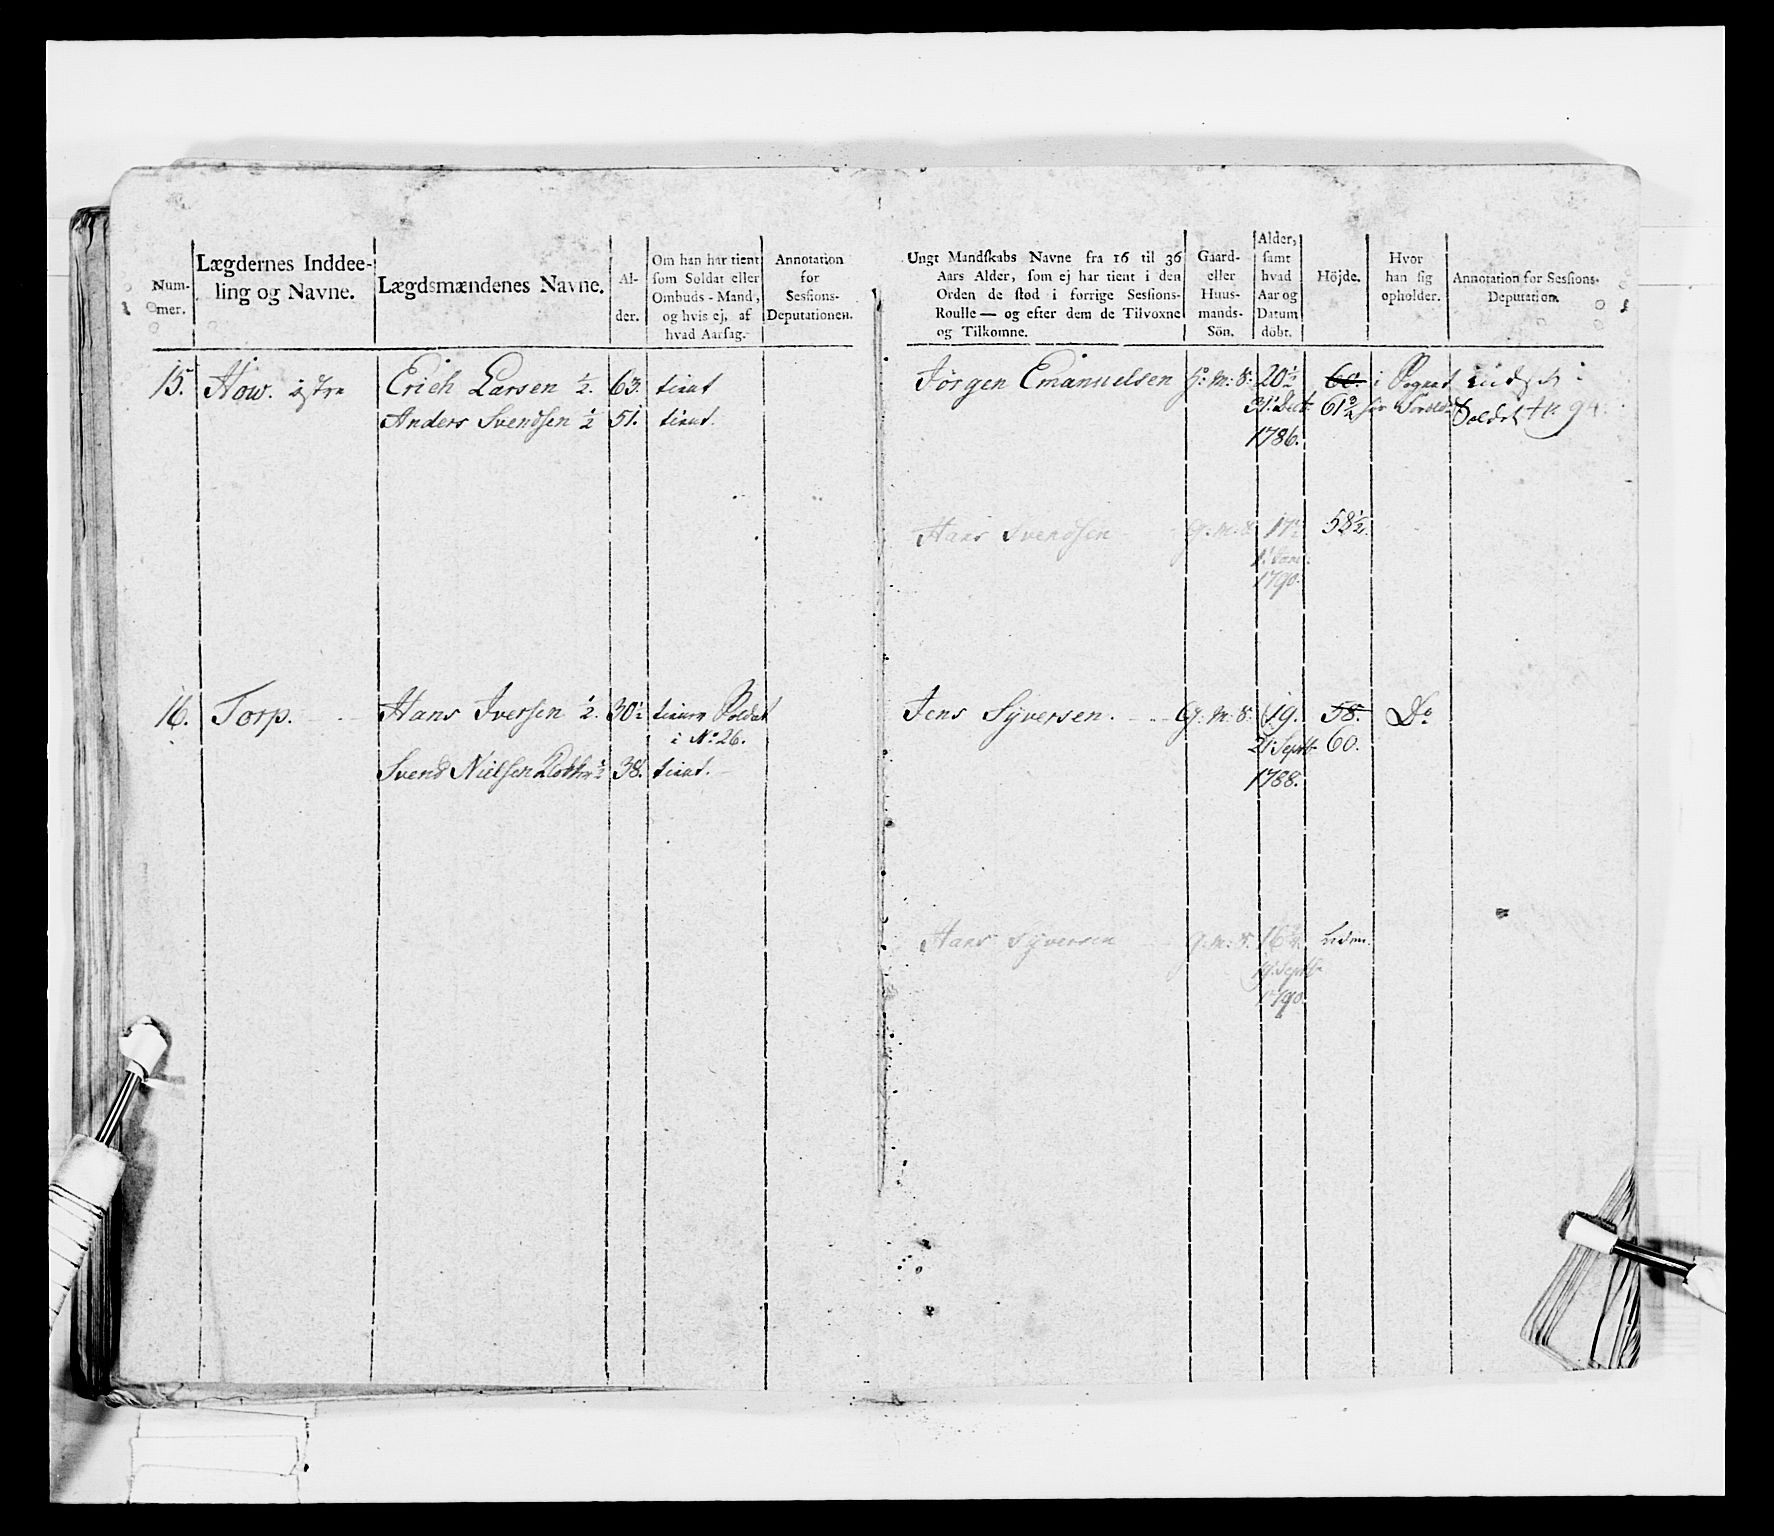 Num-
mer.
Lægdernes Inddee-
ling og Navne.
Lægdsmændenes Navne.
Al-
der.
Om han har tient
som Soldat eller
Ombuds-Mand,
og hvis ej, af
hvad Aarsag.
Annotation
for
Sessions-
Deputationen.
Ungt Mandskabs Navne fra 16 til 36
Aars Alder, som ej har tient i den
Orden de stod i forrige Sessions-
Roulle — og efter dem de Tilvoxne
og Tilkomne.
Gaard-
eller
Huus-
mands-
Sön.
Alder,
samt
hvad
Aar og
Datum
döbt.
Höjde.
Hvor
han sig
opholder.
Annotation for Sessions-
Deputation.
15. How. østre Erich Larsen ½. 63. tient
Anders Svendsen ½ 51. tient.
Jörgen Emanuelsen G: M: S: 20½ 60. i Sognet
31: Dect. 61¾
1786.
Soldat
Hans Svendsen G: M: S: 17½ 58½.
1: Janr.
1790.
16. Torp. Hans Iversen ½. 30½ Soldat
i No 26.
Svend Nielsen ½ 38. tient.
Jens Syversen. G: M: S: 19. 58. Do
21: Septbr 60.
1788.
Hans Syversen G: M: S: 16¾ uden.
19: Septbr
1790.